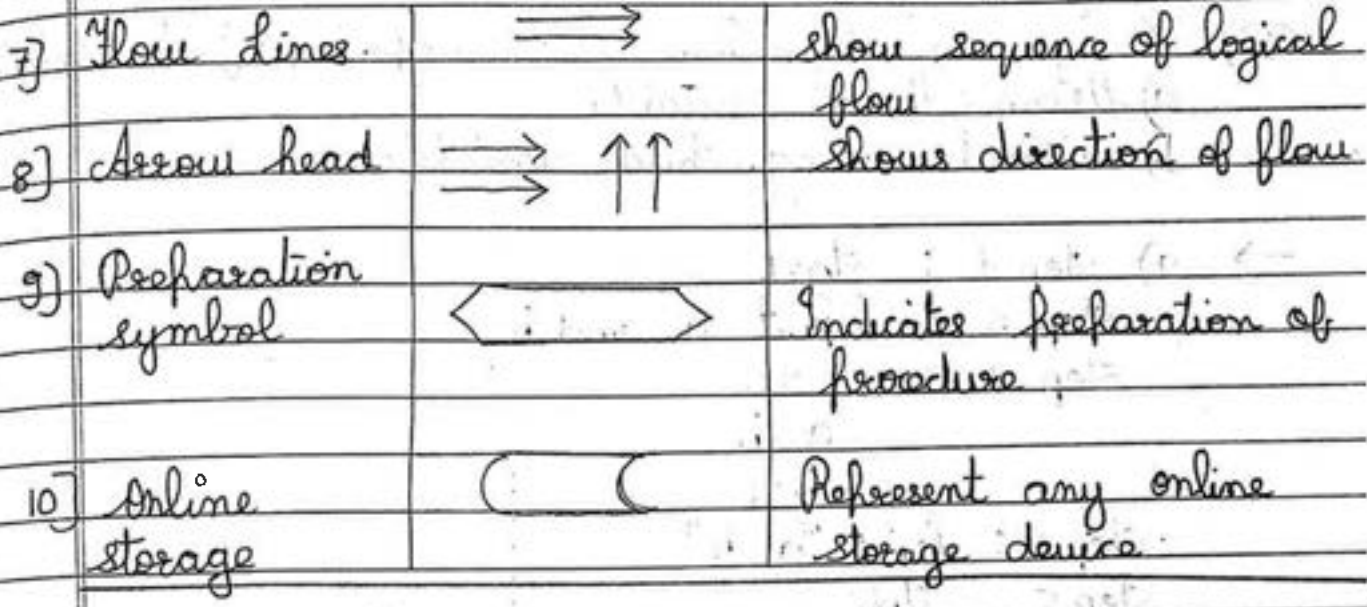 7] Flow Lines. show sequence of logical
flow
8] Arrow head shows direction of flow
9] Preparation
symbol Indicates preparation of
procedure.
10] Online Represent any online
storage storage device.